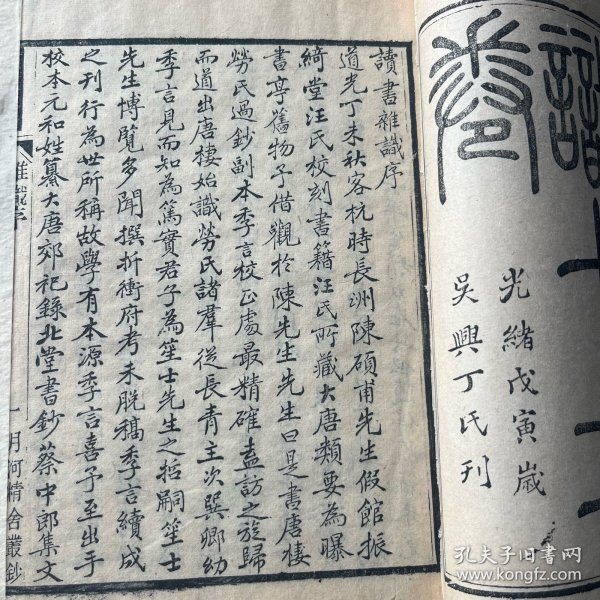 光緒戊寅歲
吳興丁氏刊
讀書雜識序
道光丁未秋客杭時長洲陳碩甫先生假館振
綺堂汪氏校刻書籍汪氏所藏大唐類要為曝
書亭舊物予借觀於陳先生先生曰是書唐棲
勞氏過鈔副本季言校正處最精確盍訪之旋歸
而道出唐棲始識勞氏諸羣從長青主次巽卿幼
季言見而知為篤實君子為笙士先生之哲嗣笙士
先生博覽多聞撰折衝府考未脫稿季言續成
之刊行為世所稱故學有本源季言喜予至出手
校本元和姓纂大唐郊祀錄北堂書鈔蔡中郎集文
雜識序
月河精舍叢鈔
孔夫子旧书网
www.kongfz.com